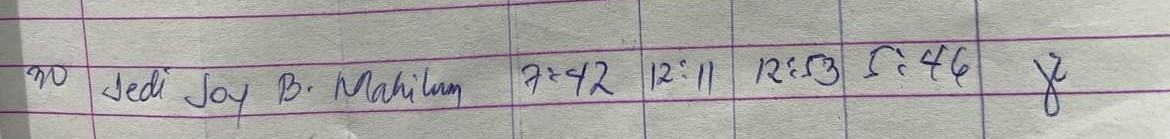 30 Jedi Joy B. Mahilum 7:42 12:11 12:53 5:46